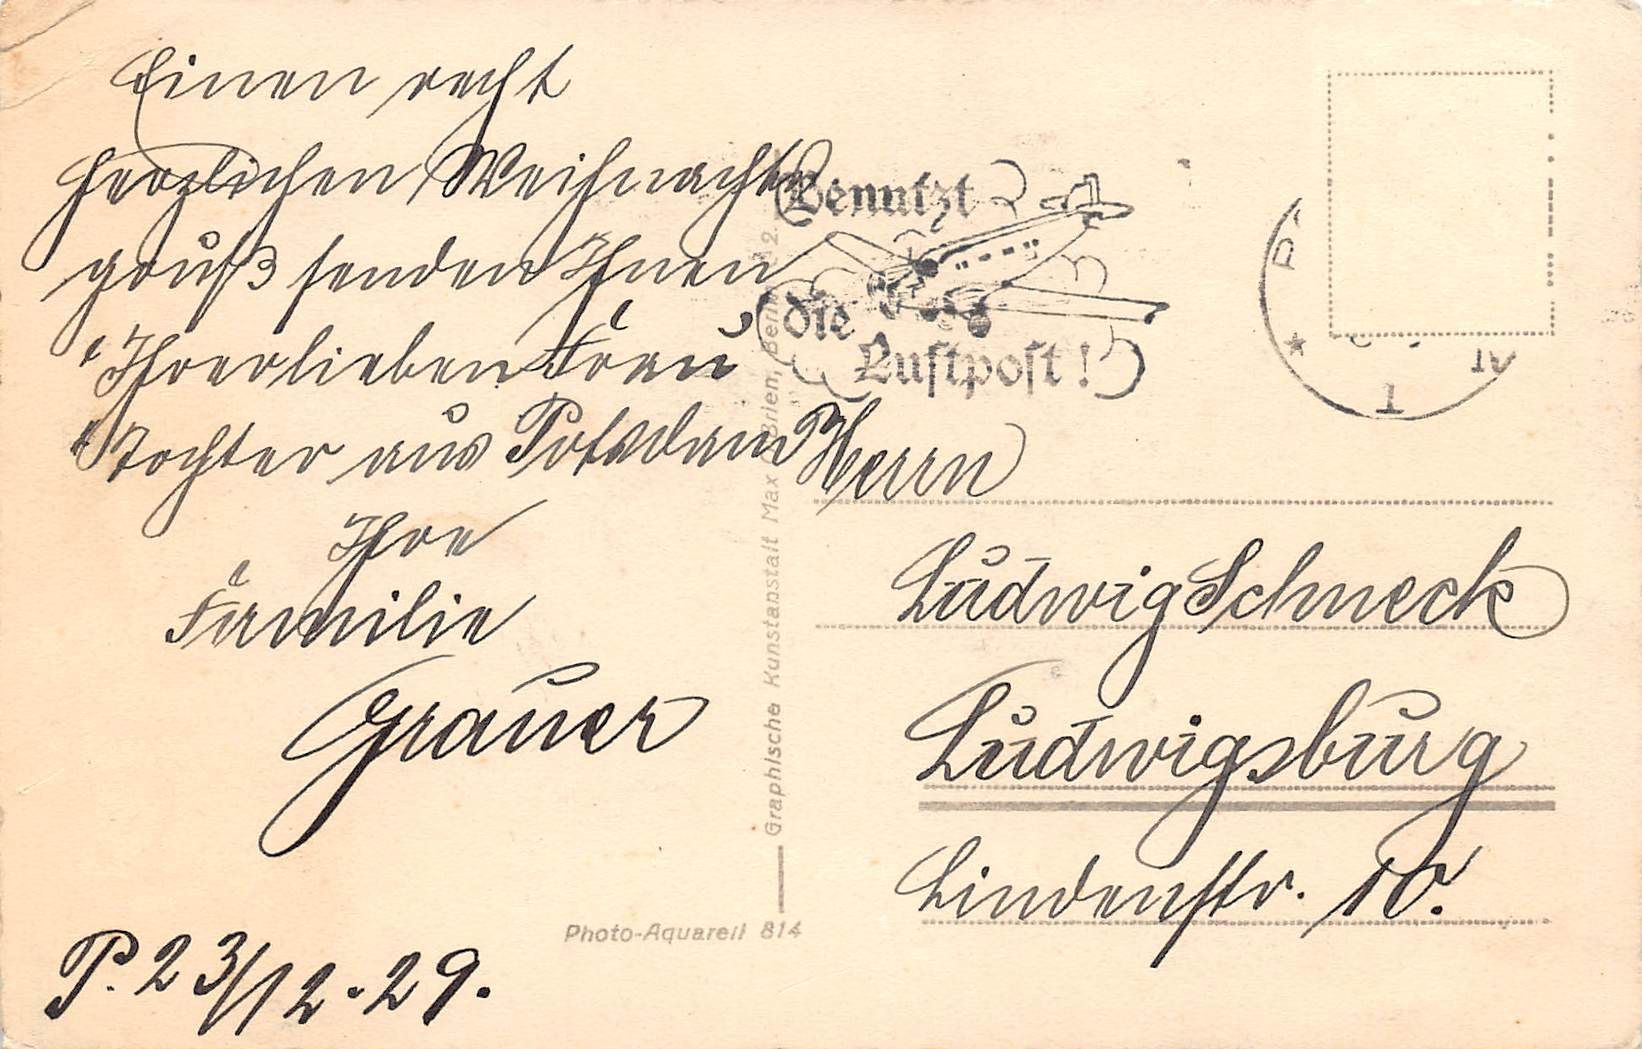 Einen recht
herzlichen Weihnachts
gruß senden Ihnen
Ihrer lieben Frau
Tochter aus Potsdam
Ihre
Familie
Grauer
P. 23/12.29.
Benutzt
die
Luftpost!
1
Herrn
Ludwig Schneck
Ludwigsburg
Lindenstr. 10.
Graphische Kunstanstalt Max O'Brien, Berlin
Photo-Aquarell 814